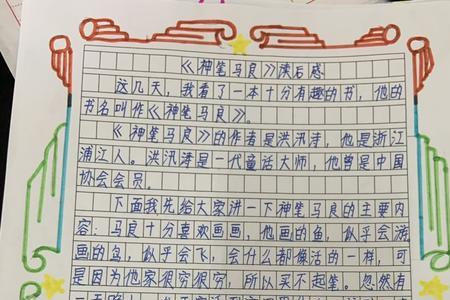 《神笔马良》读后感
这几天，我看了一本十分有趣的书，他的
书名叫作《神笔马良》。
《神笔马良》的作者是洪汛涛，他是浙江
浦江人。洪汛涛是一代童话大师，他曾是中国
协会会员。
下面我先给大家讲一下神笔马良的主要内
容：马良十分喜欢画画，他画的鱼，似乎会游，
画的鸟，似乎会飞，会什么都像活的一样，可
是因为他家很穷很穷，所以买不起笔。忽然有